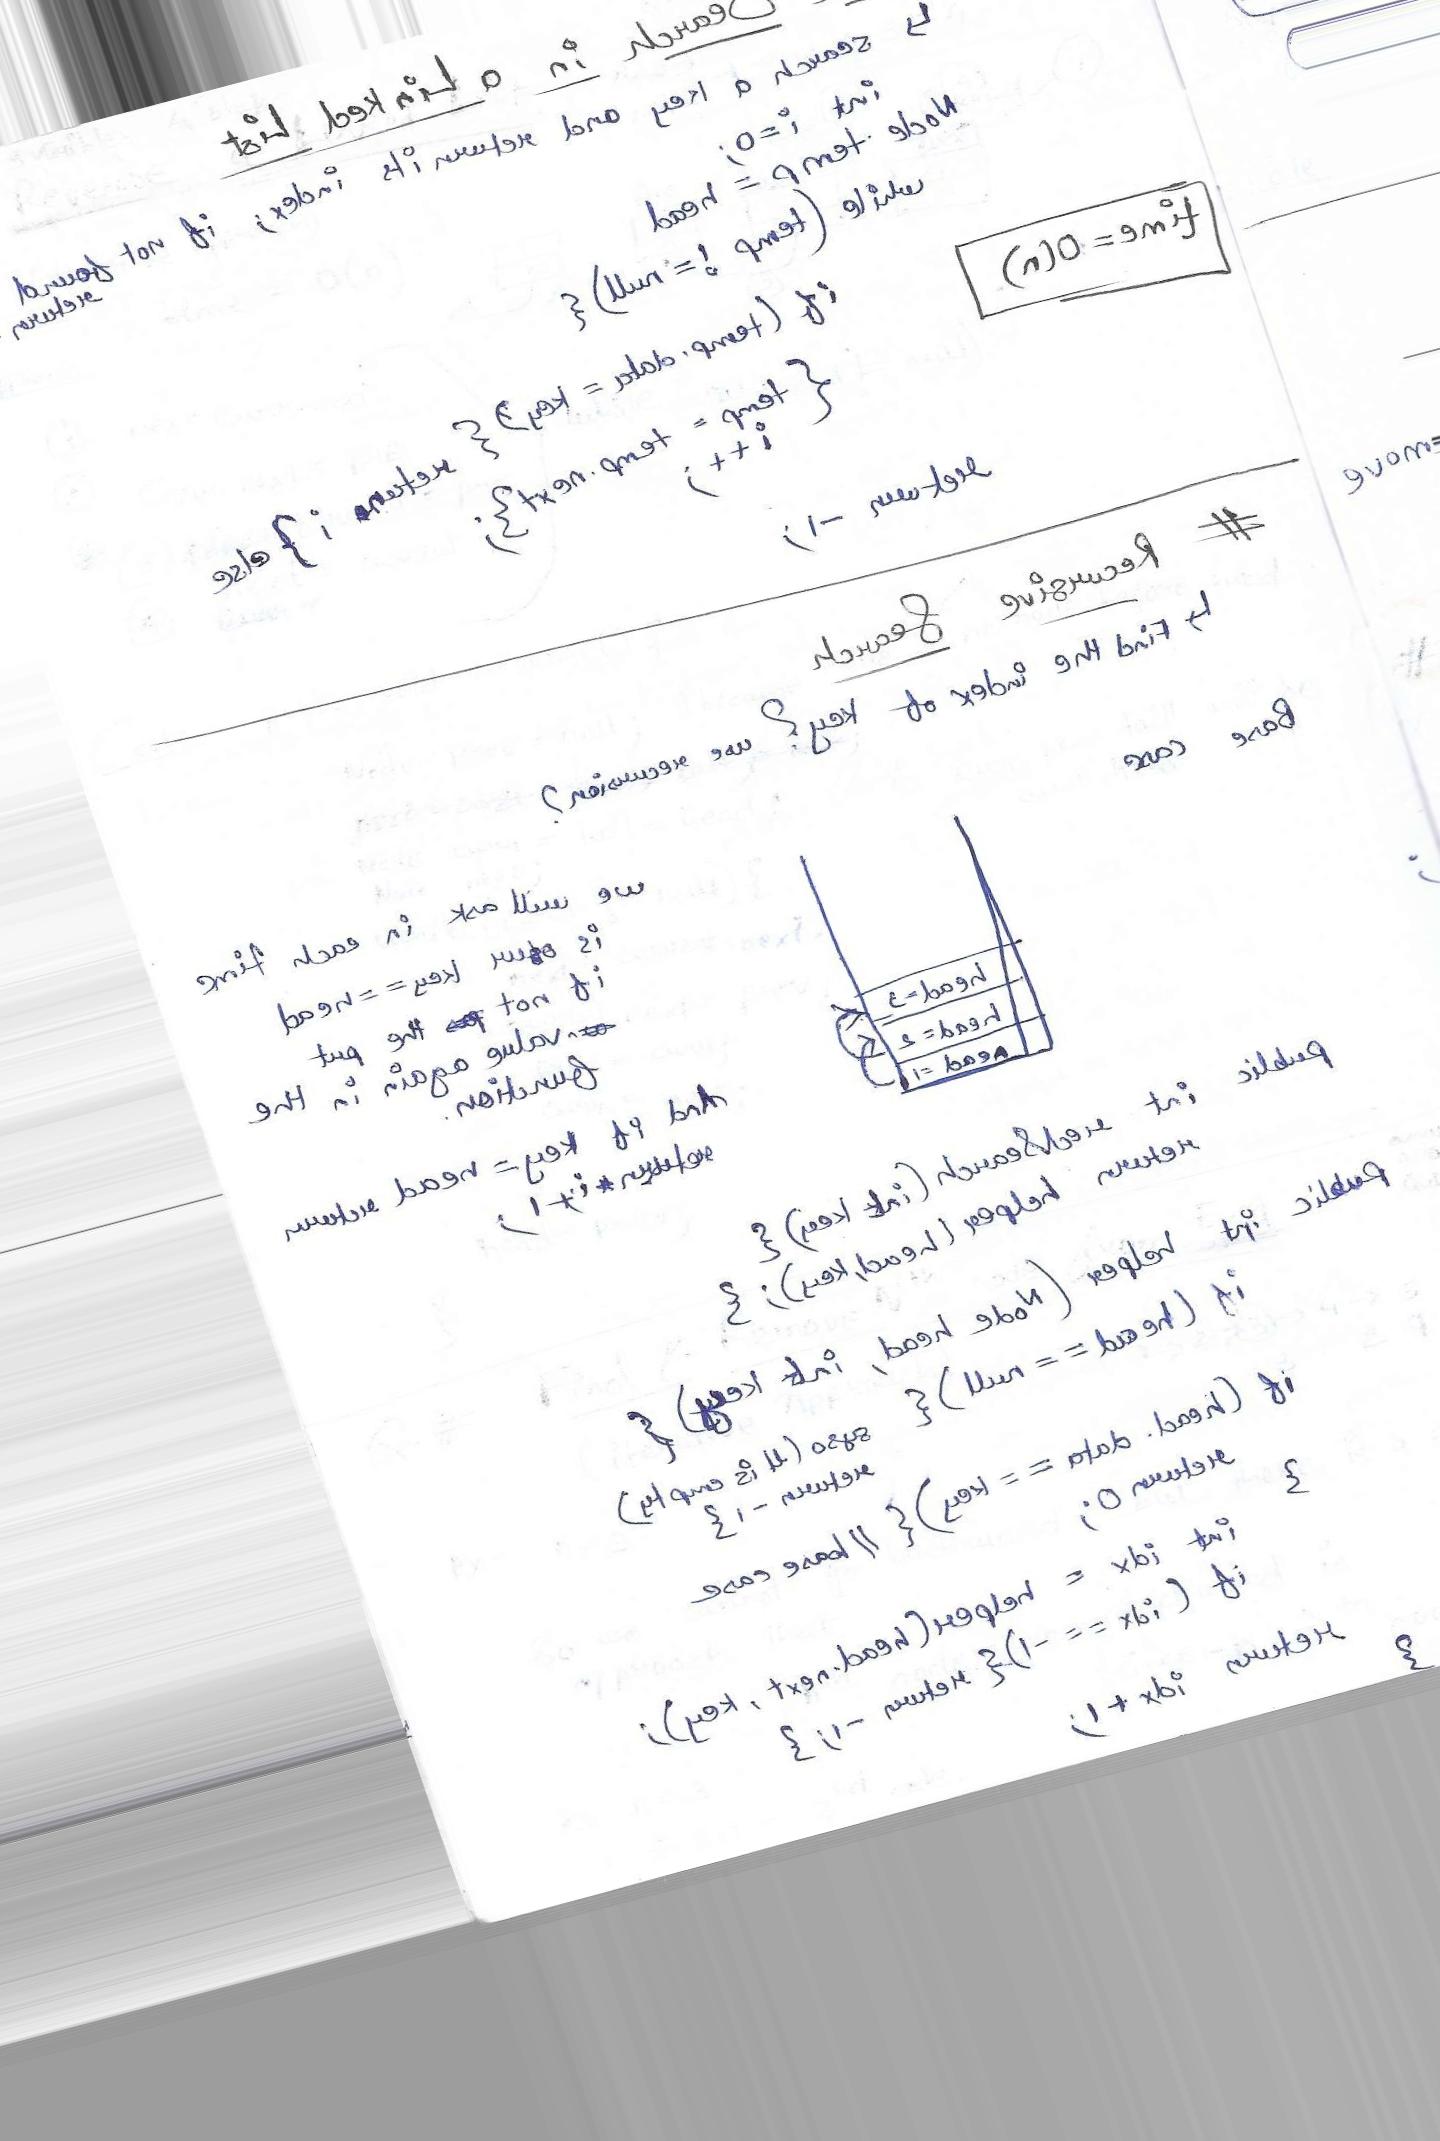 Search in a Linked List
↳ search a key and return its index; if not found
return
int i=0;
Node temp = head
while (temp != null) {
time = O(n)
if (temp.data = key) { return i } else
{ temp = temp.next };
i++;
return -1;
# Recursive Search
↳ Find the index of key? use recursion?
Base case
we will ask in each time
is our key == head
if not the put
value again in the
function.
And if key = head return
return i+1;
head=3
head=2
head=1
public int recSearch (int key) {
return helper (head, key); }
public int helper (Node head, int key) {
if (head == null) {
syso (ll is empty)
return -1 }
if (head.data == key) { // base case
return 0;
}
int idx = helper (head.next, key);
if (idx == -1) { return -1; }
return idx + 1;
}
emove
#
;